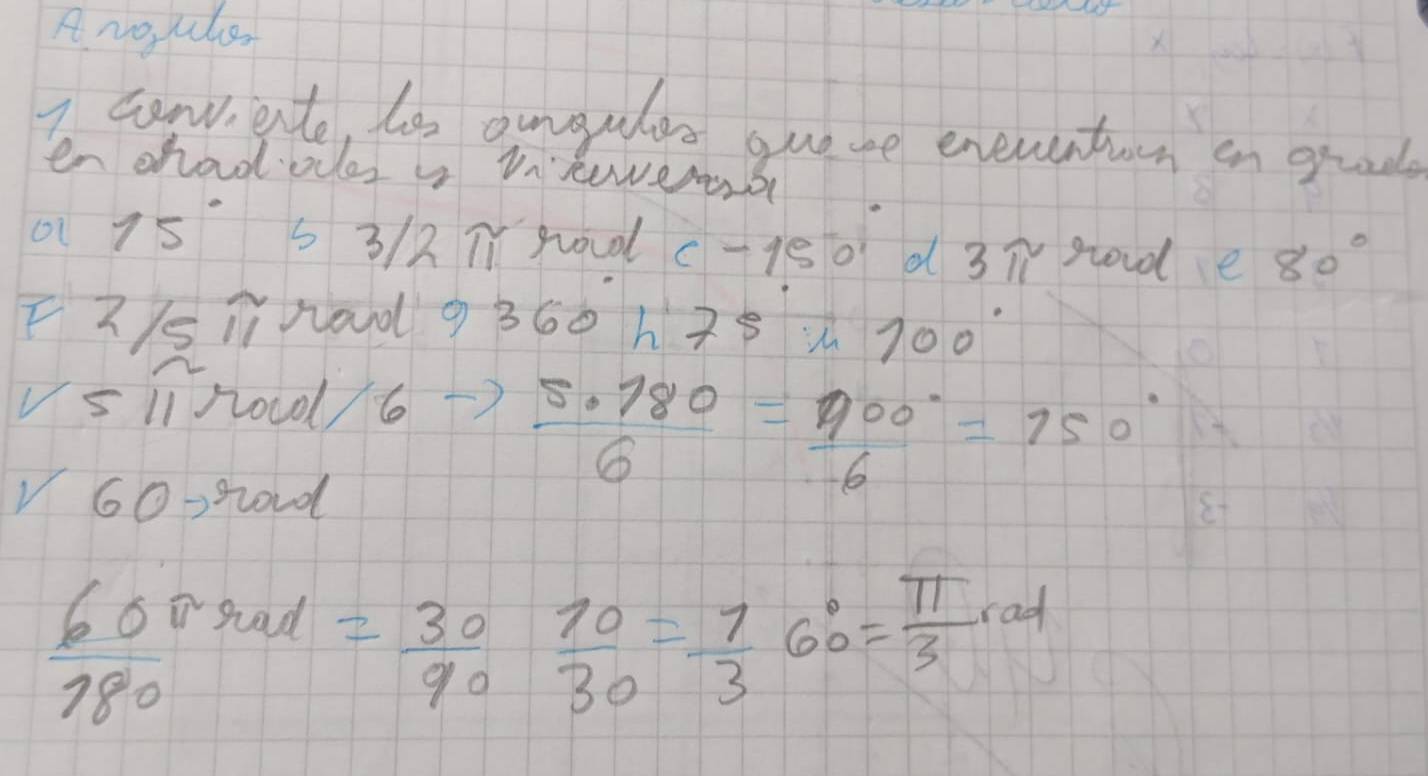 Angulos
1 convierte los angulos que se encuentran en grados
en radiales y viceversa
a 15° b 3/2 π rad c -150° d 3π rad e 80°
F 2/5 π rad g 360° h 75° i 100°
√ 5 π rad/6 → 5.180/6 = 900°/6 = 150°
√ 60→rad
60 π rad/180 = 30/90 10/30 = 1/3 60° = π/3 rad